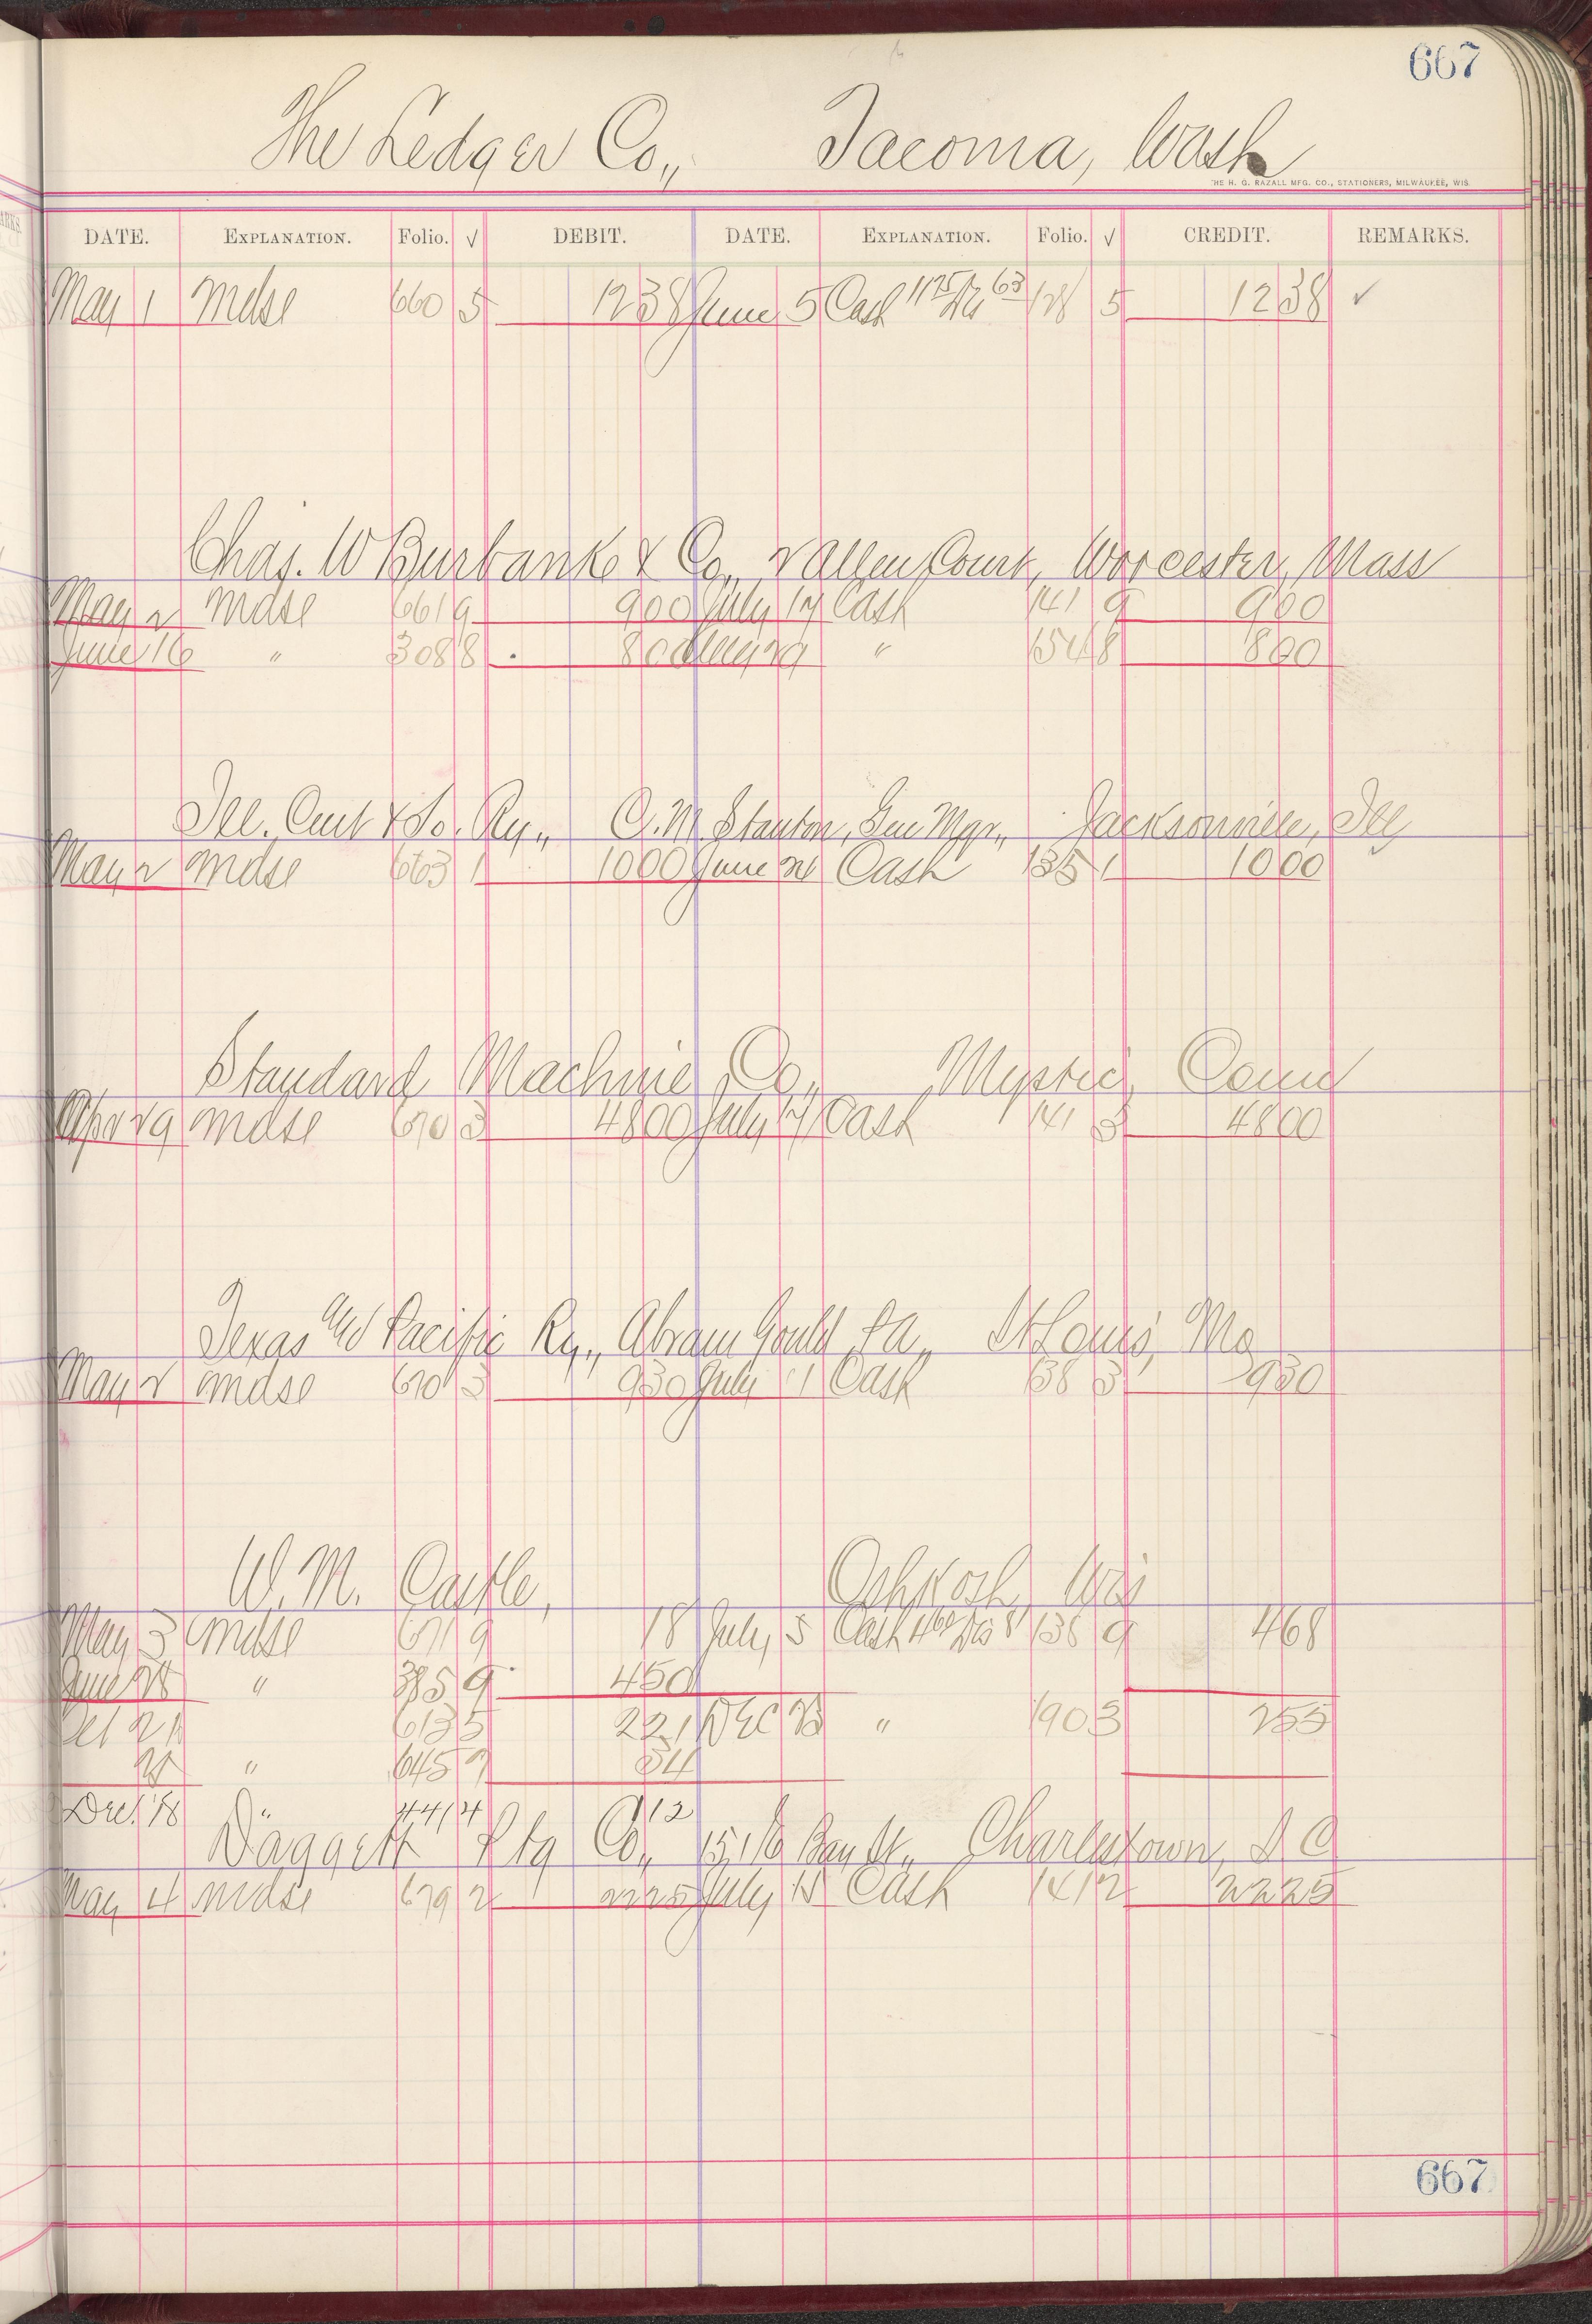 667
The Ledger Co., Tacoma, Wash
THE H. G. RAZALL MFG. CO., STATIONERS, MILWAUKEE, WIS.
DATE. EXPLANATION. Folio. √ DEBIT. DATE. EXPLANATION. Folio. √ CREDIT. REMARKS.
May 1 Mdse 660 5 1238 June 5 Cash 1175 63 128 5 1238 ✓
Chas. W Burbank & Co., 2 Allen Court, Worcester, Mass
May 2 Mdse 661 9 900 July 17 Cash 141 9 900
June 16 " 308 8 800 29 " 154 8 800
Ill. Cent & So. Ry., C. M Stanton, Gen Mgr., Jacksonville, Ill
May 2 Mdse 663 1 1000 June 26 Cash 135 1 1000
Standard Machine Co., Mystic, Conn
Apr 29 Mdse 670 3 4800 July 17 Cash 141 3 4800
Texas and Pacific Ry., Abram Gould, PA., St Louis, Mo
May 2 Mdse 670 3 930 July 11 Cash 138 3 930
W. M. Castle, Oshkosh, Wis
May 3 Mdse 671 9 18 July 5 Cash 460 8 136 9 468
June 28 " 385 9 450
Oct 21 613 5 221 Dec " 190 3 255
" 645 7 34
Dec. 18 " 441 4 12
Daggett Ptg Co., 151 1/6 Bay St., Charlestown, S C
May 4 Mdse 679 2 2225 July 15 Cash 141 2 2225
667